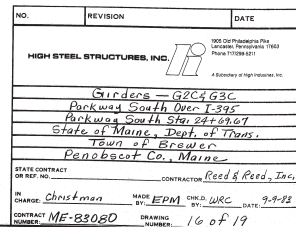 NO. REVISION DATE
HIGH STEEL STRUCTURES, INC.
1905 Old Philadelphia Pike
Lancaster, Pennsylvania 17603
Phone 717/299-5211
A Subsidiary of High Industries, Inc.
Girders — G2C & G3C
Parkway South Over I-395
Parkway South Sta. 24+69.67
State of Maine, Dept. of Trans.
Town of Brewer
Penobscot Co., Maine
STATE CONTRACT
OR REF. NO. CONTRACTOR Reed & Reed, Inc.
IN CHARGE: Christman MADE BY: EPM CHK.D. BY: WRC DATE: 9-9-83
CONTRACT NUMBER: ME-83080 DRAWING NUMBER: 16 of 19